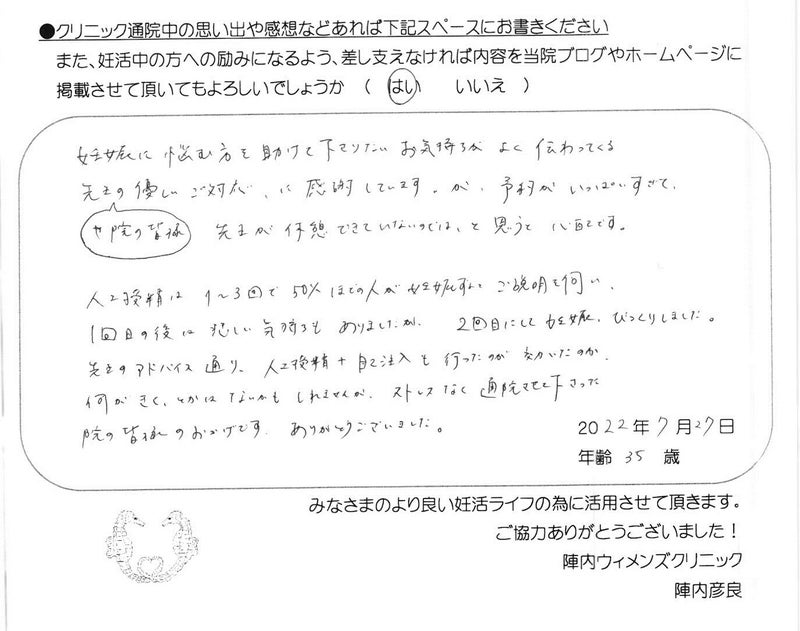 ●クリニック通院中の思い出や感想などあれば下記スペースにお書きください
また、妊活中の方への励みになるよう、差し支えなければ内容を当院ブログやホームページに
掲載させて頂いてもよろしいでしょうか （ はい　いいえ ）
妊娠に悩む方を助けて下さりたいお気持ちがよく伝わってくる
先生の優しいご対応、に感謝しています。が、予約がいっぱいすぎて、
や院の皆様
先生が休憩できていないのでは、と思うと心配です。
人工授精は1〜3回で50%ほどの人が妊娠すると ご説明を伺い、
1回目の後は悲しい気持ちもありましたが、2回目にして妊娠、びっくりしました。
先生のアドバイス通り、人工授精+自己注入も行ったのが効いたのか、
何がきく、とかはないかもしれませんが、ストレスなく通院させて下さった
院の皆様のおかげです。ありがとうございました。
2022年7月27日
年齢 35 歳
みなさまのより良い妊活ライフの為に活用させて頂きます。
ご協力ありがとうございました！
陣内ウィメンズクリニック
陣内彦良